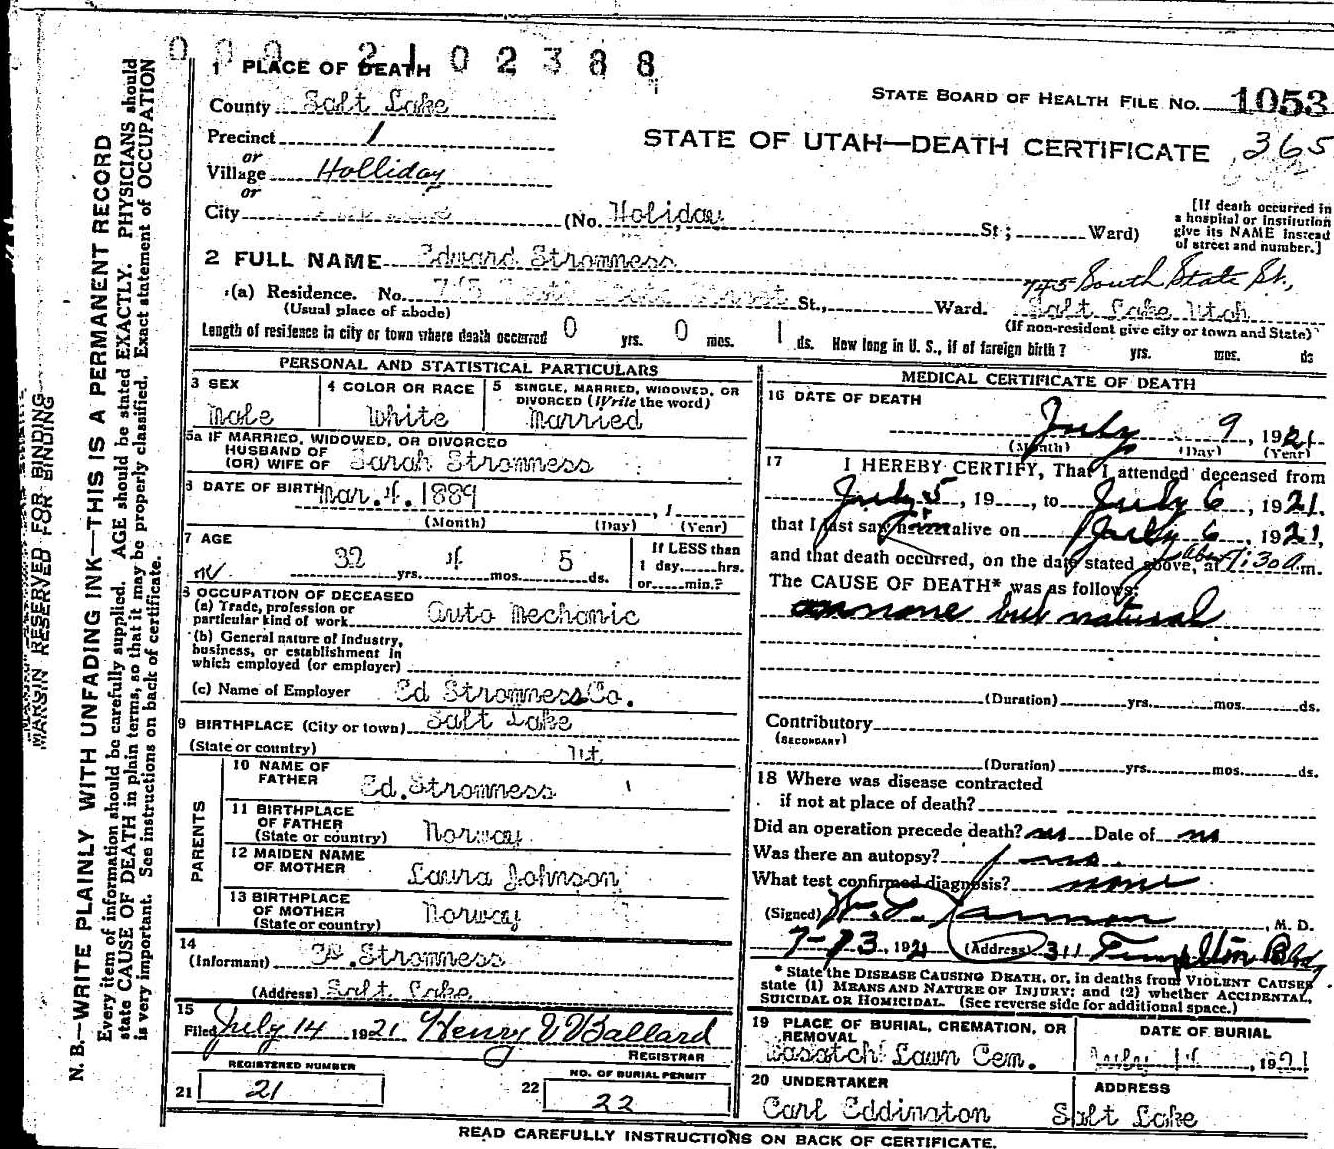 0 0 0 2 1 0 2 3 8 8
1 PLACE OF DEATH
County Salt Lake
STATE BOARD OF HEALTH FILE NO. 1053
Precinct 1
STATE OF UTAH—DEATH CERTIFICATE 365
or
Village Holliday
or
City (No. Holiday St; Ward)
[If death occurred in a hospital or institution give its NAME instead of street and number.]
2 FULL NAME Edward Stromness
745 South State St.,
(a) Residence. No. St., Ward. Salt Lake Utah
(Usual place of abode)
(If non-resident give city or town and State)
Length of residence in city or town where death occurred 0 yrs. 0 mos. 1 ds. How long in U. S., if of foreign birth? yrs. mos. ds
PERSONAL AND STATISTICAL PARTICULARS
3 SEX
Male
4 COLOR OR RACE
White
5 SINGLE, MARRIED, WIDOWED, OR
DIVORCED (Write the word)
Married
5a IF MARRIED, WIDOWED, OR DIVORCED
HUSBAND OF
(OR) WIFE OF Sarah Stromness
6 DATE OF BIRTH Mar. 4. 1889
(Month) (Day) (Year)
7 AGE
32 yrs. 4 mos. 5 ds.
If LESS than
1 day hrs.
or min.?
8 OCCUPATION OF DECEASED
(a) Trade, profession or
particular kind of work Auto Mechanic
(b) General nature of Industry,
business, or establishment in
which employed (or employer)
(c) Name of Employer Ed Stromness Co.
9 BIRTHPLACE (City or town) Salt Lake
(State or country) Ut
PARENTS
10 NAME OF
FATHER Ed. Stromness
11 BIRTHPLACE
OF FATHER
(State or country) Norway
12 MAIDEN NAME
OF MOTHER Laura Johnson
13 BIRTHPLACE
OF MOTHER
(State or country) Norway
14
(Informant) Ed. Stromness
(Address) Salt Lake
15
Filed July 14 1921 Henry W Ballard
REGISTRAR
REGISTERED NUMBER
21 21
NO. OF BURIAL PERMIT
22 22
MEDICAL CERTIFICATE OF DEATH
16 DATE OF DEATH
July 9, 1921
(Month) (Day) (Year)
17 I HEREBY CERTIFY, That I attended deceased from
July 5, 19, to July 6, 1921.
that I last saw him alive on July 6, 1921,
and that death occurred, on the date stated above, at about 1:30 a.m.
The CAUSE OF DEATH* was as follows:
none but natural
(Duration) yrs. mos. ds.
Contributory
(SECONDARY)
(Duration) yrs. mos. ds.
18 Where was disease contracted
if not at place of death?
Did an operation precede death? no Date of no
Was there an autopsy? no.
What test confirmed diagnosis? none
(Signed) M. D.
7-13, 1921 (Address) 311 Templeton Bldg
* State the DISEASE CAUSING DEATH, or, in deaths from VIOLENT CAUSES
state (1) MEANS AND NATURE OF INJURY; and (2) whether ACCIDENTAL,
SUICIDAL OR HOMICIDAL. (See reverse side for additional space.)
19 PLACE OF BURIAL, CREMATION, OR
REMOVAL
Wasatch Lawn Cem.
DATE OF BURIAL
July, 1921
20 UNDERTAKER
Carl Eddington
ADDRESS
Salt Lake
READ CAREFULLY INSTRUCTIONS ON BACK OF CERTIFICATE.
MARGIN RESERVED FOR BINDING
N. B.—WRITE PLAINLY WITH UNFADING INK—THIS IS A PERMANENT RECORD
Every item of information should be carefully supplied. AGE should be stated EXACTLY. PHYSICIANS should
state CAUSE OF DEATH in plain terms, so that it may be properly classified. Exact statement of OCCUPATION
is very important. See instructions on back of certificate.